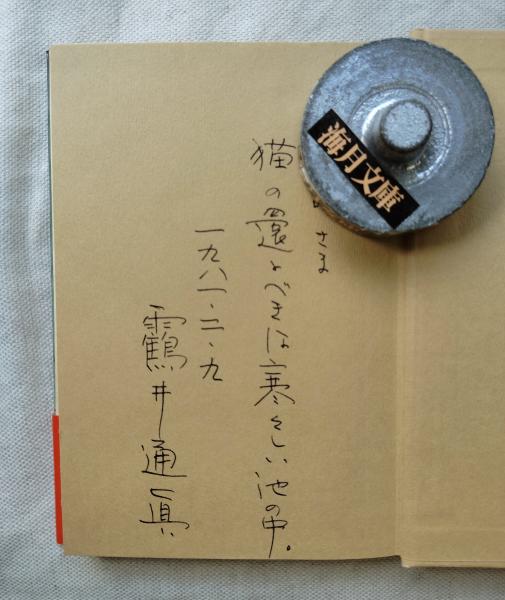 海月文庫
さま
猫の還るべきは寒々しい池の中。
一九八一・二・九
靏井通眞